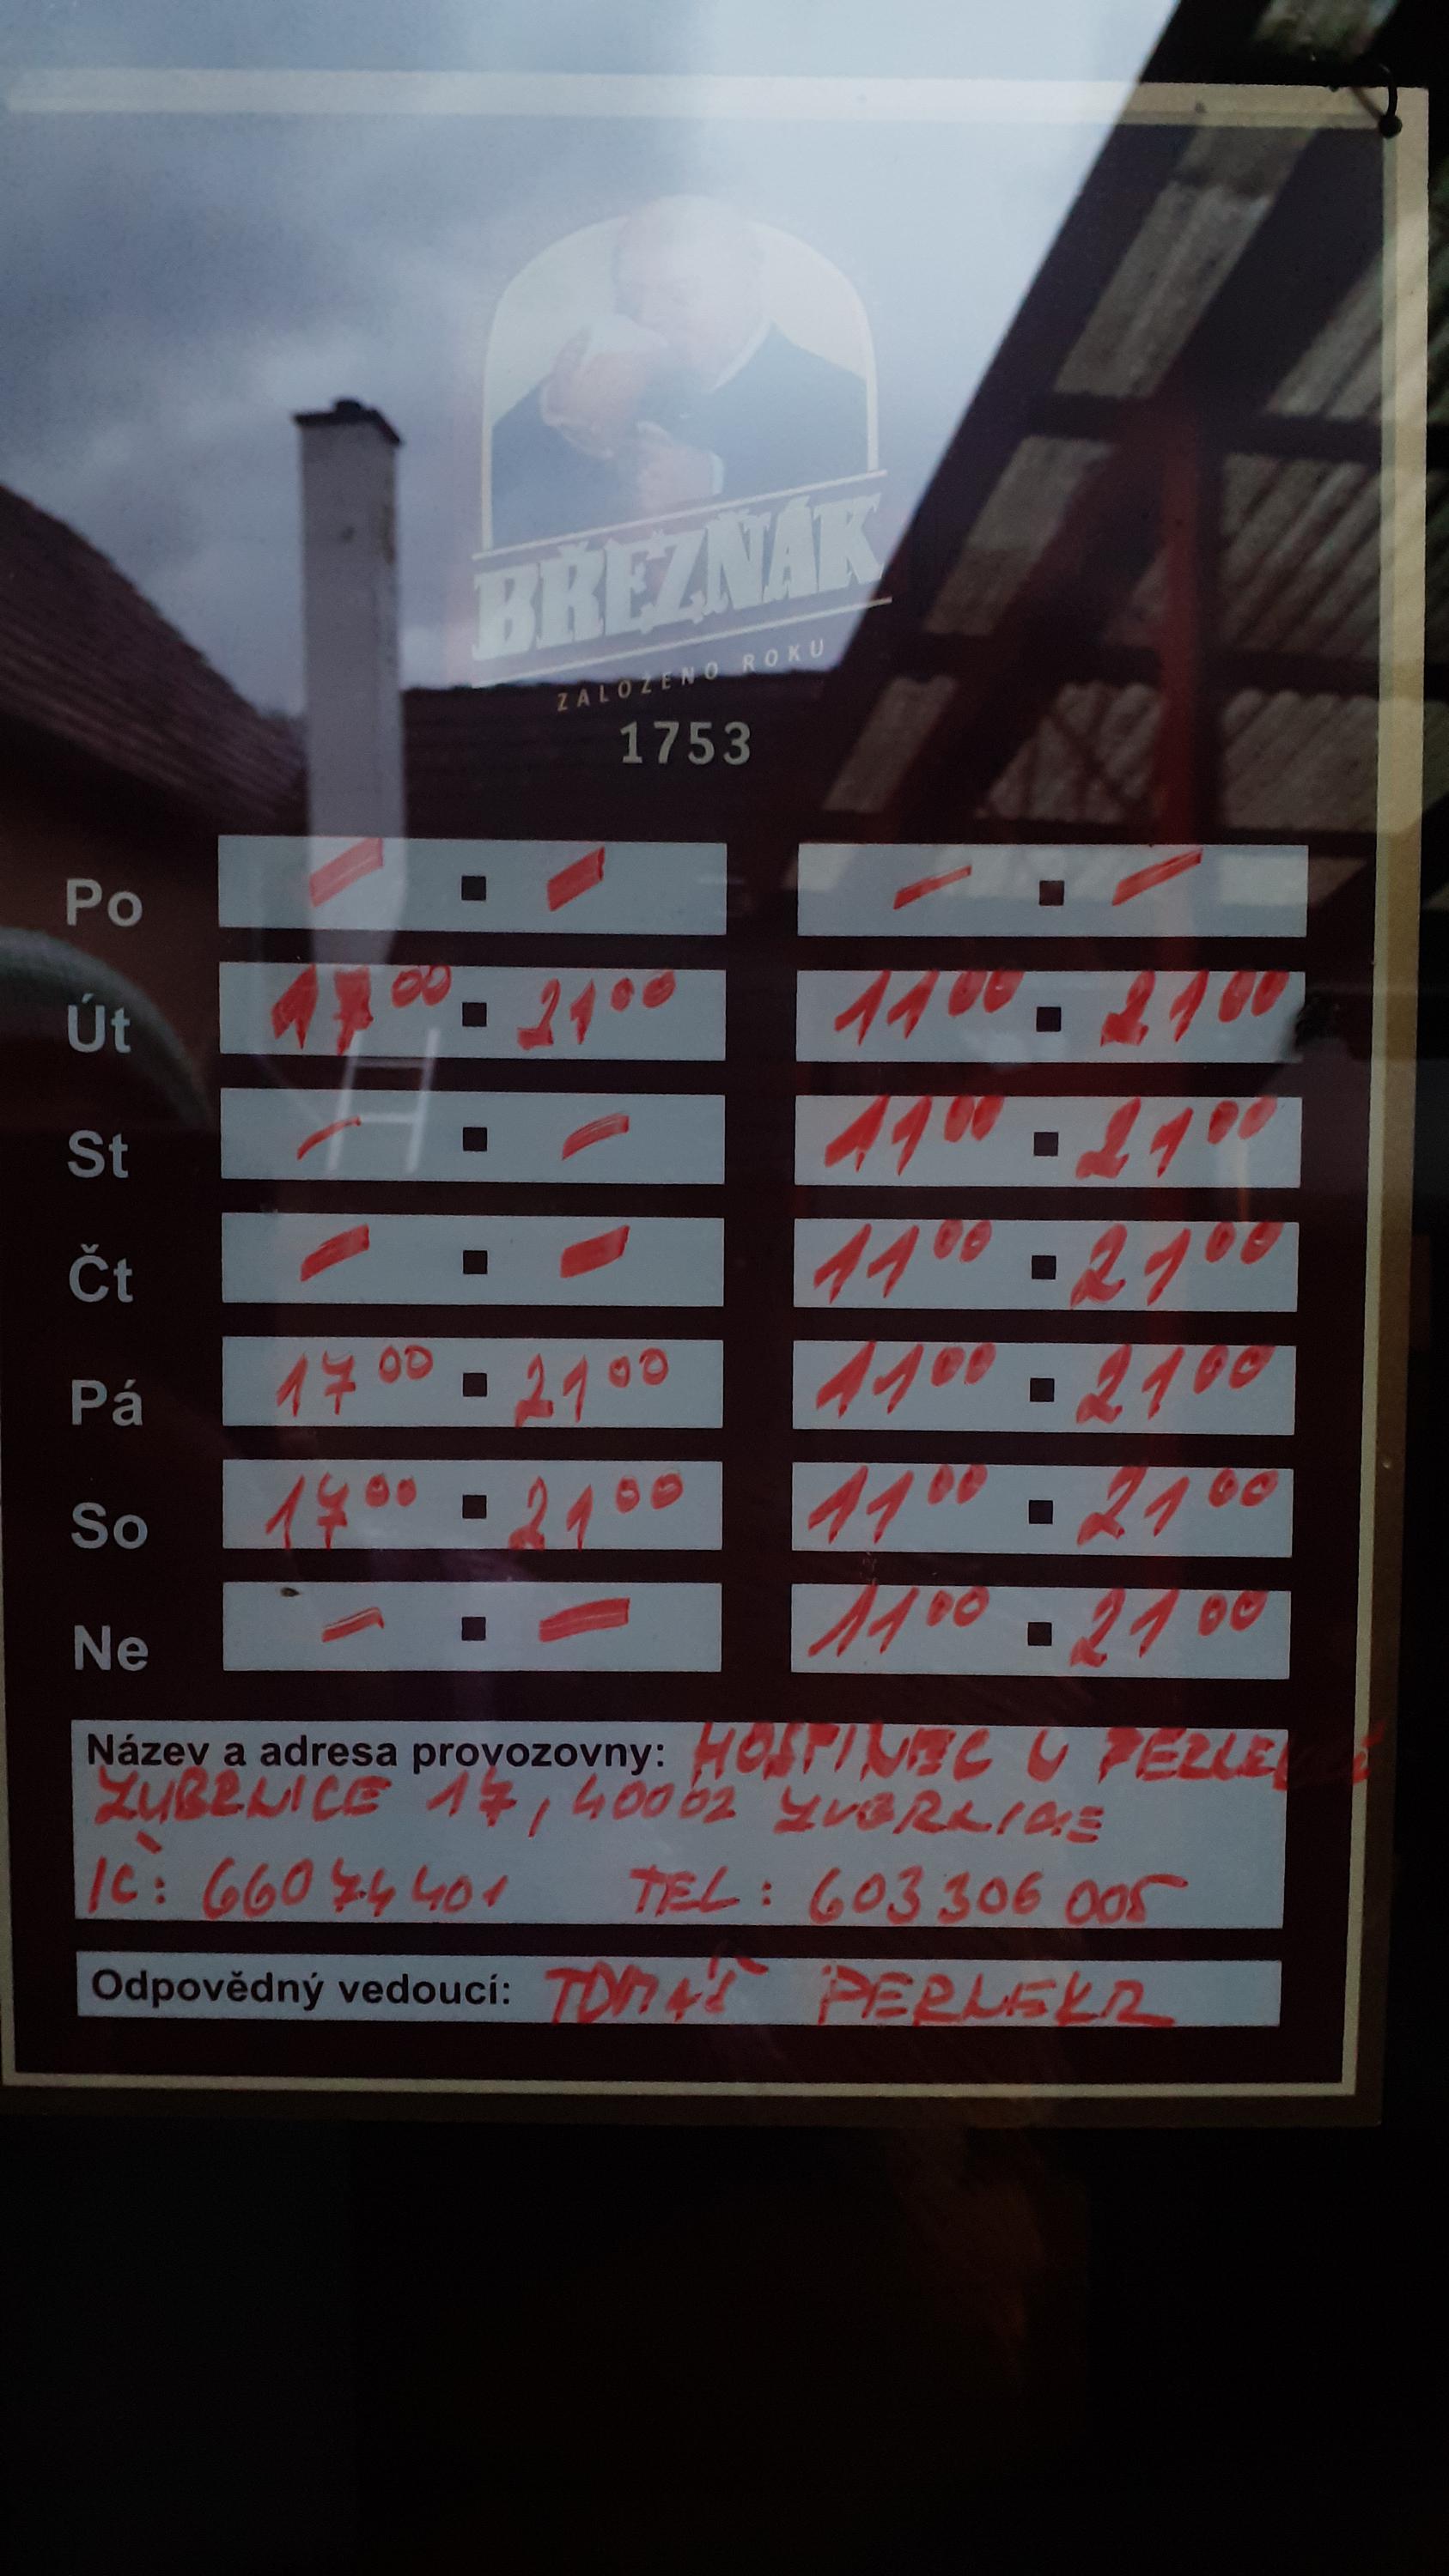 BŘEZŇÁK
ZALOŽENO ROKU
1753
Po – ▪ – – ▪ –
Út 17 00 ▪ 21 00 11 00 ▪ 21 00
St – ▪ – 11 00 ▪ 21 00
Čt – ▪ – 11 00 ▪ 21 00
Pá 17 00 ▪ 21 00 11 00 ▪ 21 00
So 17 00 ▪ 21 00 11 00 ▪ 21 00
Ne – ▪ – 11 00 ▪ 21 00
Název a adresa provozovny: HOSTINEC U
ZUBRNICE 17, 40002 ZUBRNICE
IČ: 66074401 TEL: 603 306 005
Odpovědný vedoucí: TOMÁŠ